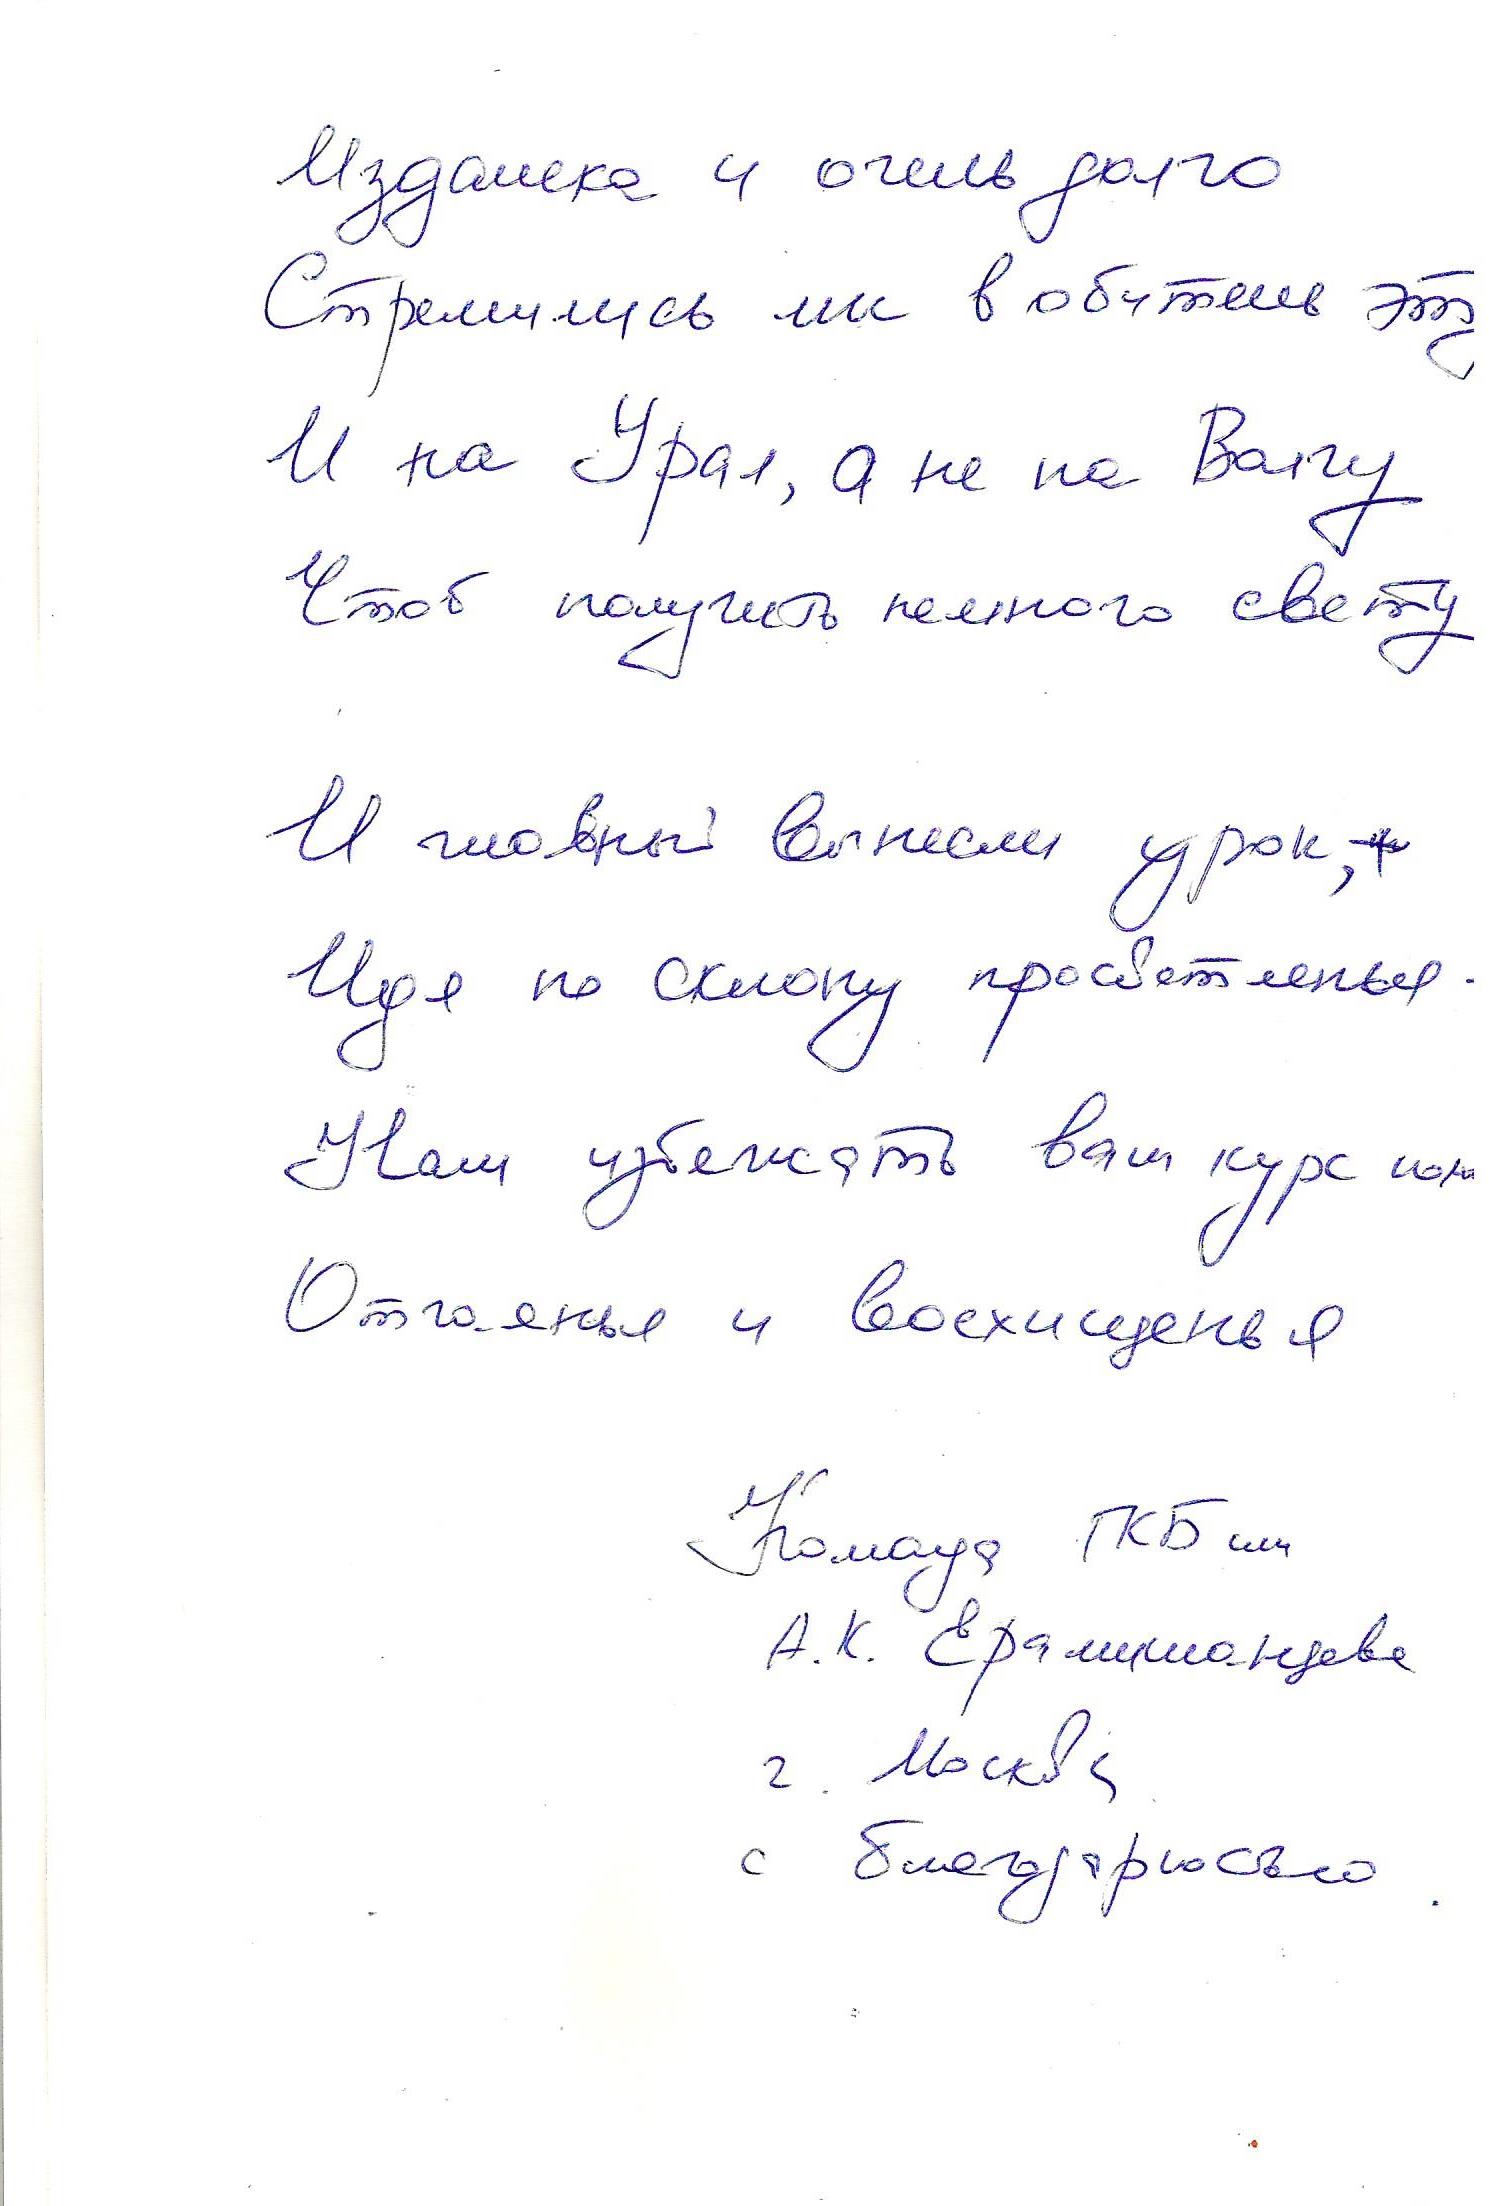 Издалека и очень долго
Стремились мы в обитель эту
И на Урал, а не на Волгу
Чтоб получить немного свету
И главный вынесли урок,
Идя по склону просветленья.
Нам избежать ваш курс
Отчаянья и восхищенья
Команда ГКБ им
А.К. Ерамишанцева
г. Москва
с благодарностью.